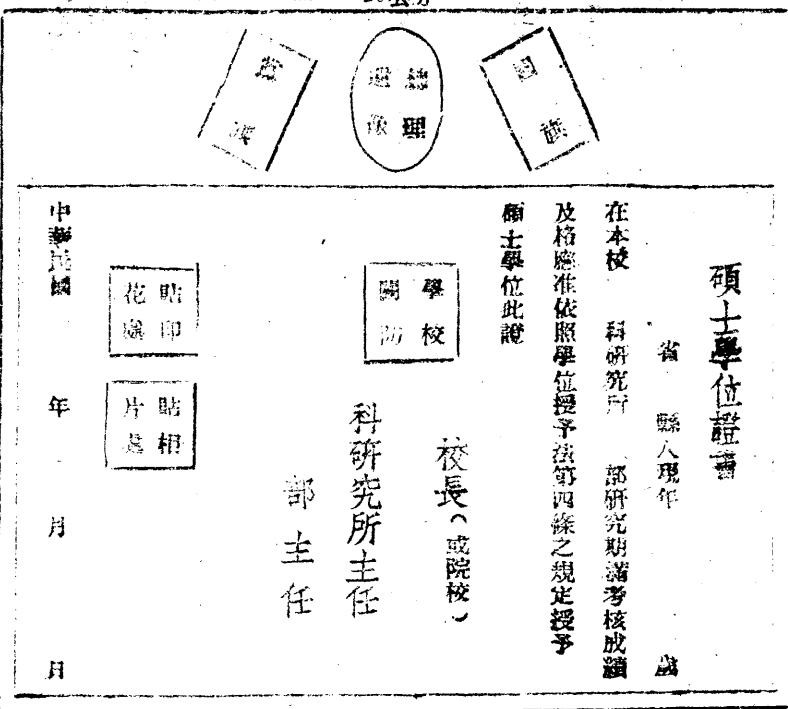 公分
國旗
總理遺像
黨旗
碩士學位證書
省 縣人現年 歲
在本校 科研究所 部研究期滿考核成績
及格應准依照學位授予法第四條之規定授予
碩士學位此證
學校關防
校長（或院校）
科研究所主任
部主任
貼印花處
貼相片處
中華民國 年 月 日